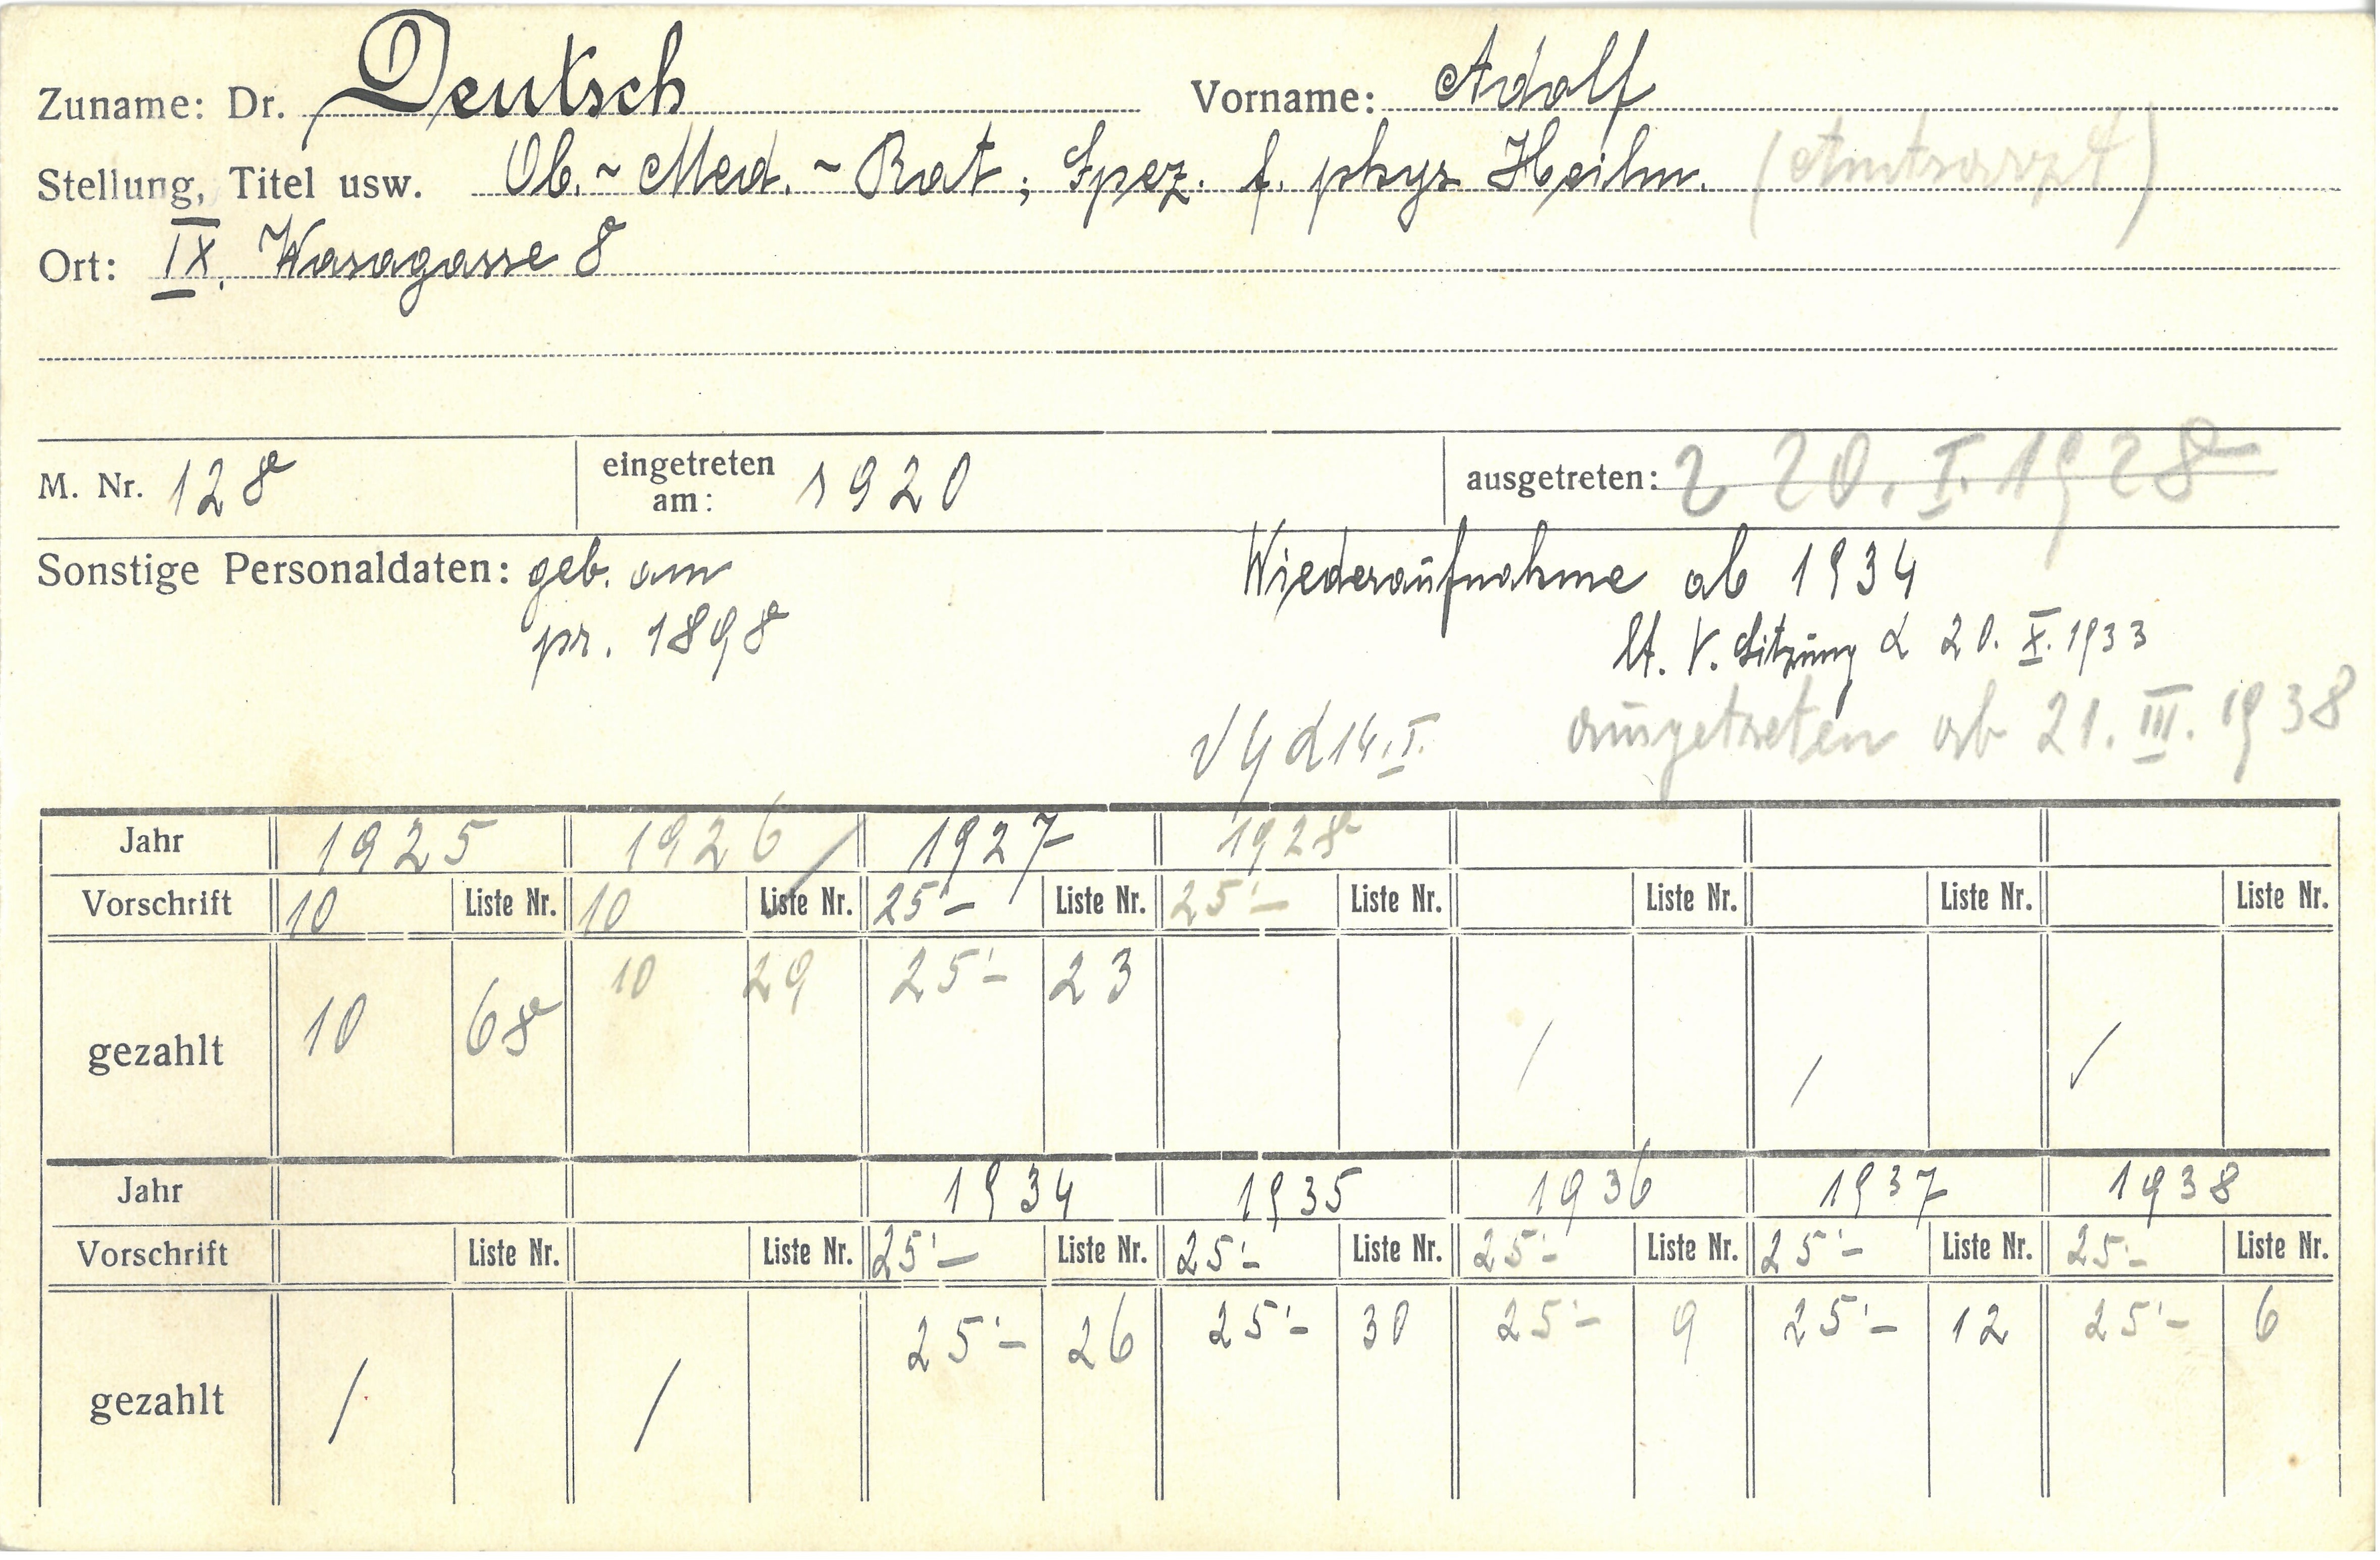 Zuname: Dr. Deutsch Vorname: Adolf
Stellung, Titel usw. Ob.-Med.-Rat; Spez. f. phys Heilm. (Amtsarzt)
Ort: IX. Wasagasse 8
M. Nr. 128 eingetreten am: 1920 ausgetreten: 20. I. 1928
Sonstige Personaldaten: geb. am Wiederaufnahme ab 1934
pr. 1898 lt. V. Sitzung d 20. X. 1933
d 14. I. ausgetreten ab 21. III. 1938
Jahr 1925 1926 1927 1928
Vorschrift 10 Liste Nr. 10 Liste Nr. 25'- Liste Nr. 25'- Liste Nr. Liste Nr. Liste Nr. Liste Nr.
gezahlt 10 68 10 29 25'- 23
Jahr 1934 1935 1936 1937 1938
Vorschrift Liste Nr. Liste Nr. 25'- Liste Nr. 25'- Liste Nr. 25'- Liste Nr. 25'- Liste Nr. 25- Liste Nr.
gezahlt 25'- 26 25'- 30 25'- 9 25'- 12 25'- 6